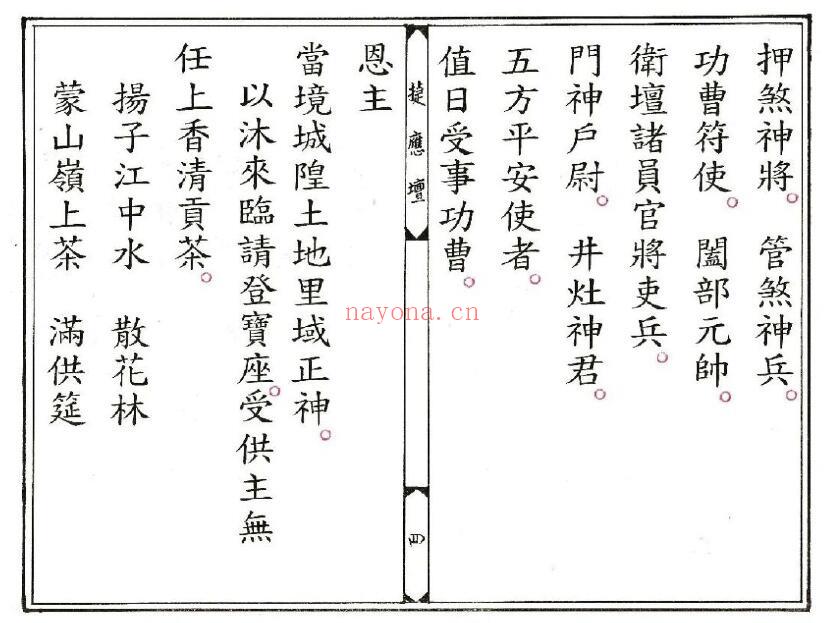 押煞神將。　管煞神兵。
功曹符使。　闔部元帥。
衛壇諸員官將吏兵。
門神戶尉。　井灶神君。
五方平安使者。
值日受事功曹。
捷應壇
恩主
當境城隍土地里域正神。
以沐來臨請登寶座。受供主無
任上香清貢茶。
揚子江中水　散花林
蒙山嶺上茶　滿供筵
nayona.cn